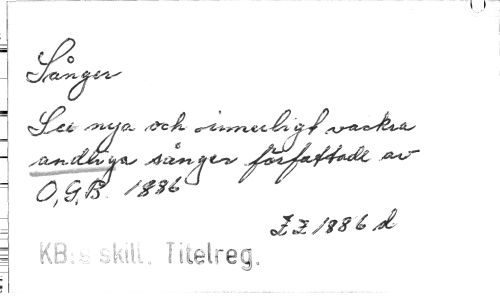 Sånger
Sex nya och innerligt vackra
andliga sånger författade av
O.G.B. 1886
ZZ 1886 d
KB:s skill. Titelreg.